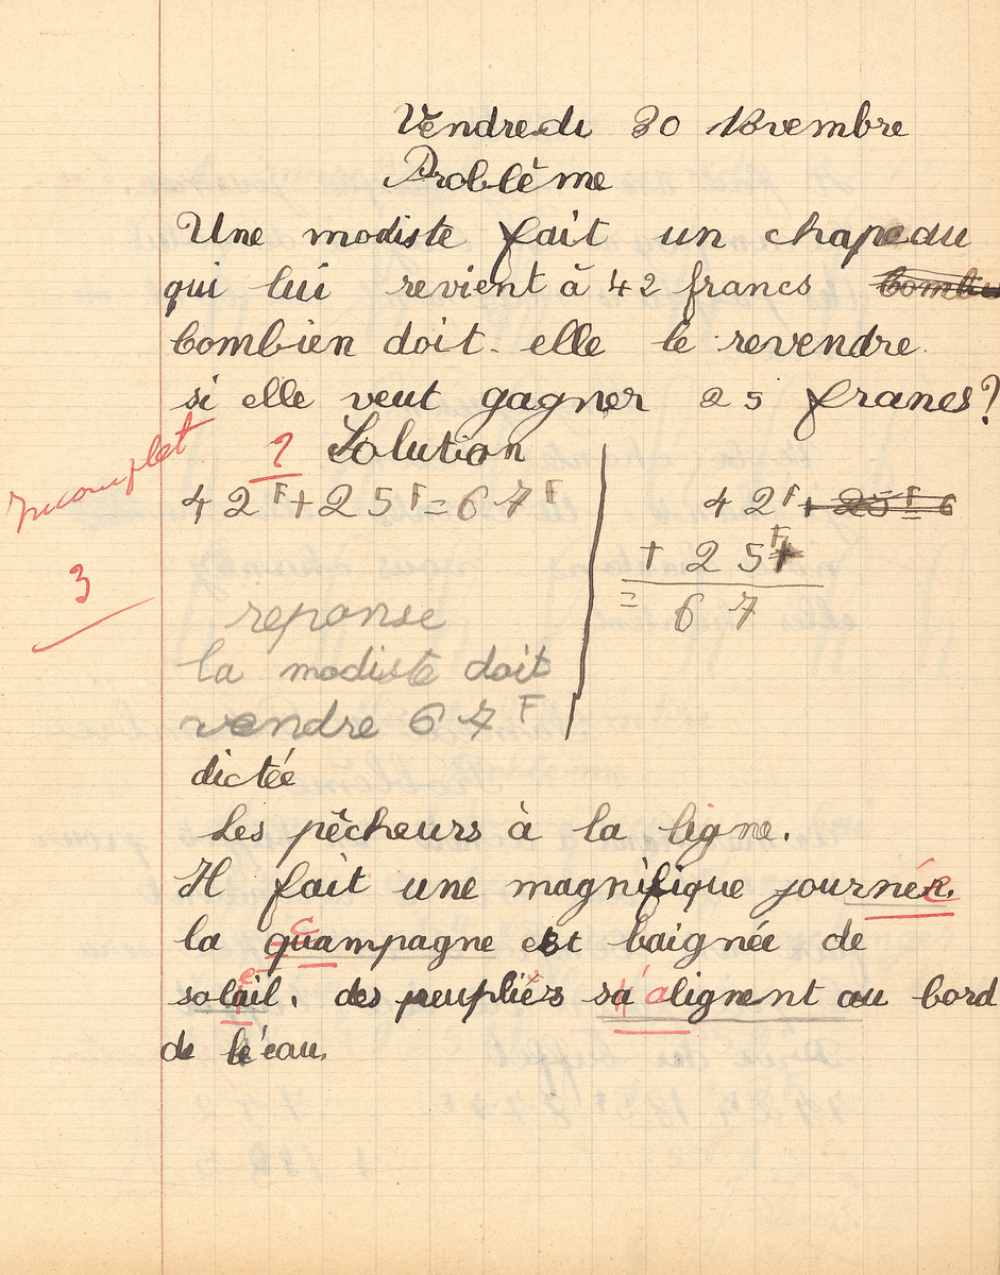 Vendredi 30 Novembre
Problême
Une modiste fait un chapeau
qui lui revient à 42 francs
Combien doit-elle le revendre
si elle veut gagner 25 francs?
Incomplet ? Solution
42F+25F=67F
42F+25F=6
+ 25F
3
= 67
reponse
la modiste doit
vendre 67F
dictée
Les pêcheurs à la ligne.
Il fait une magnifique journée.
la quampagne est baignée de
solail. des peupliers sa'alignent au bord
de l'eau.